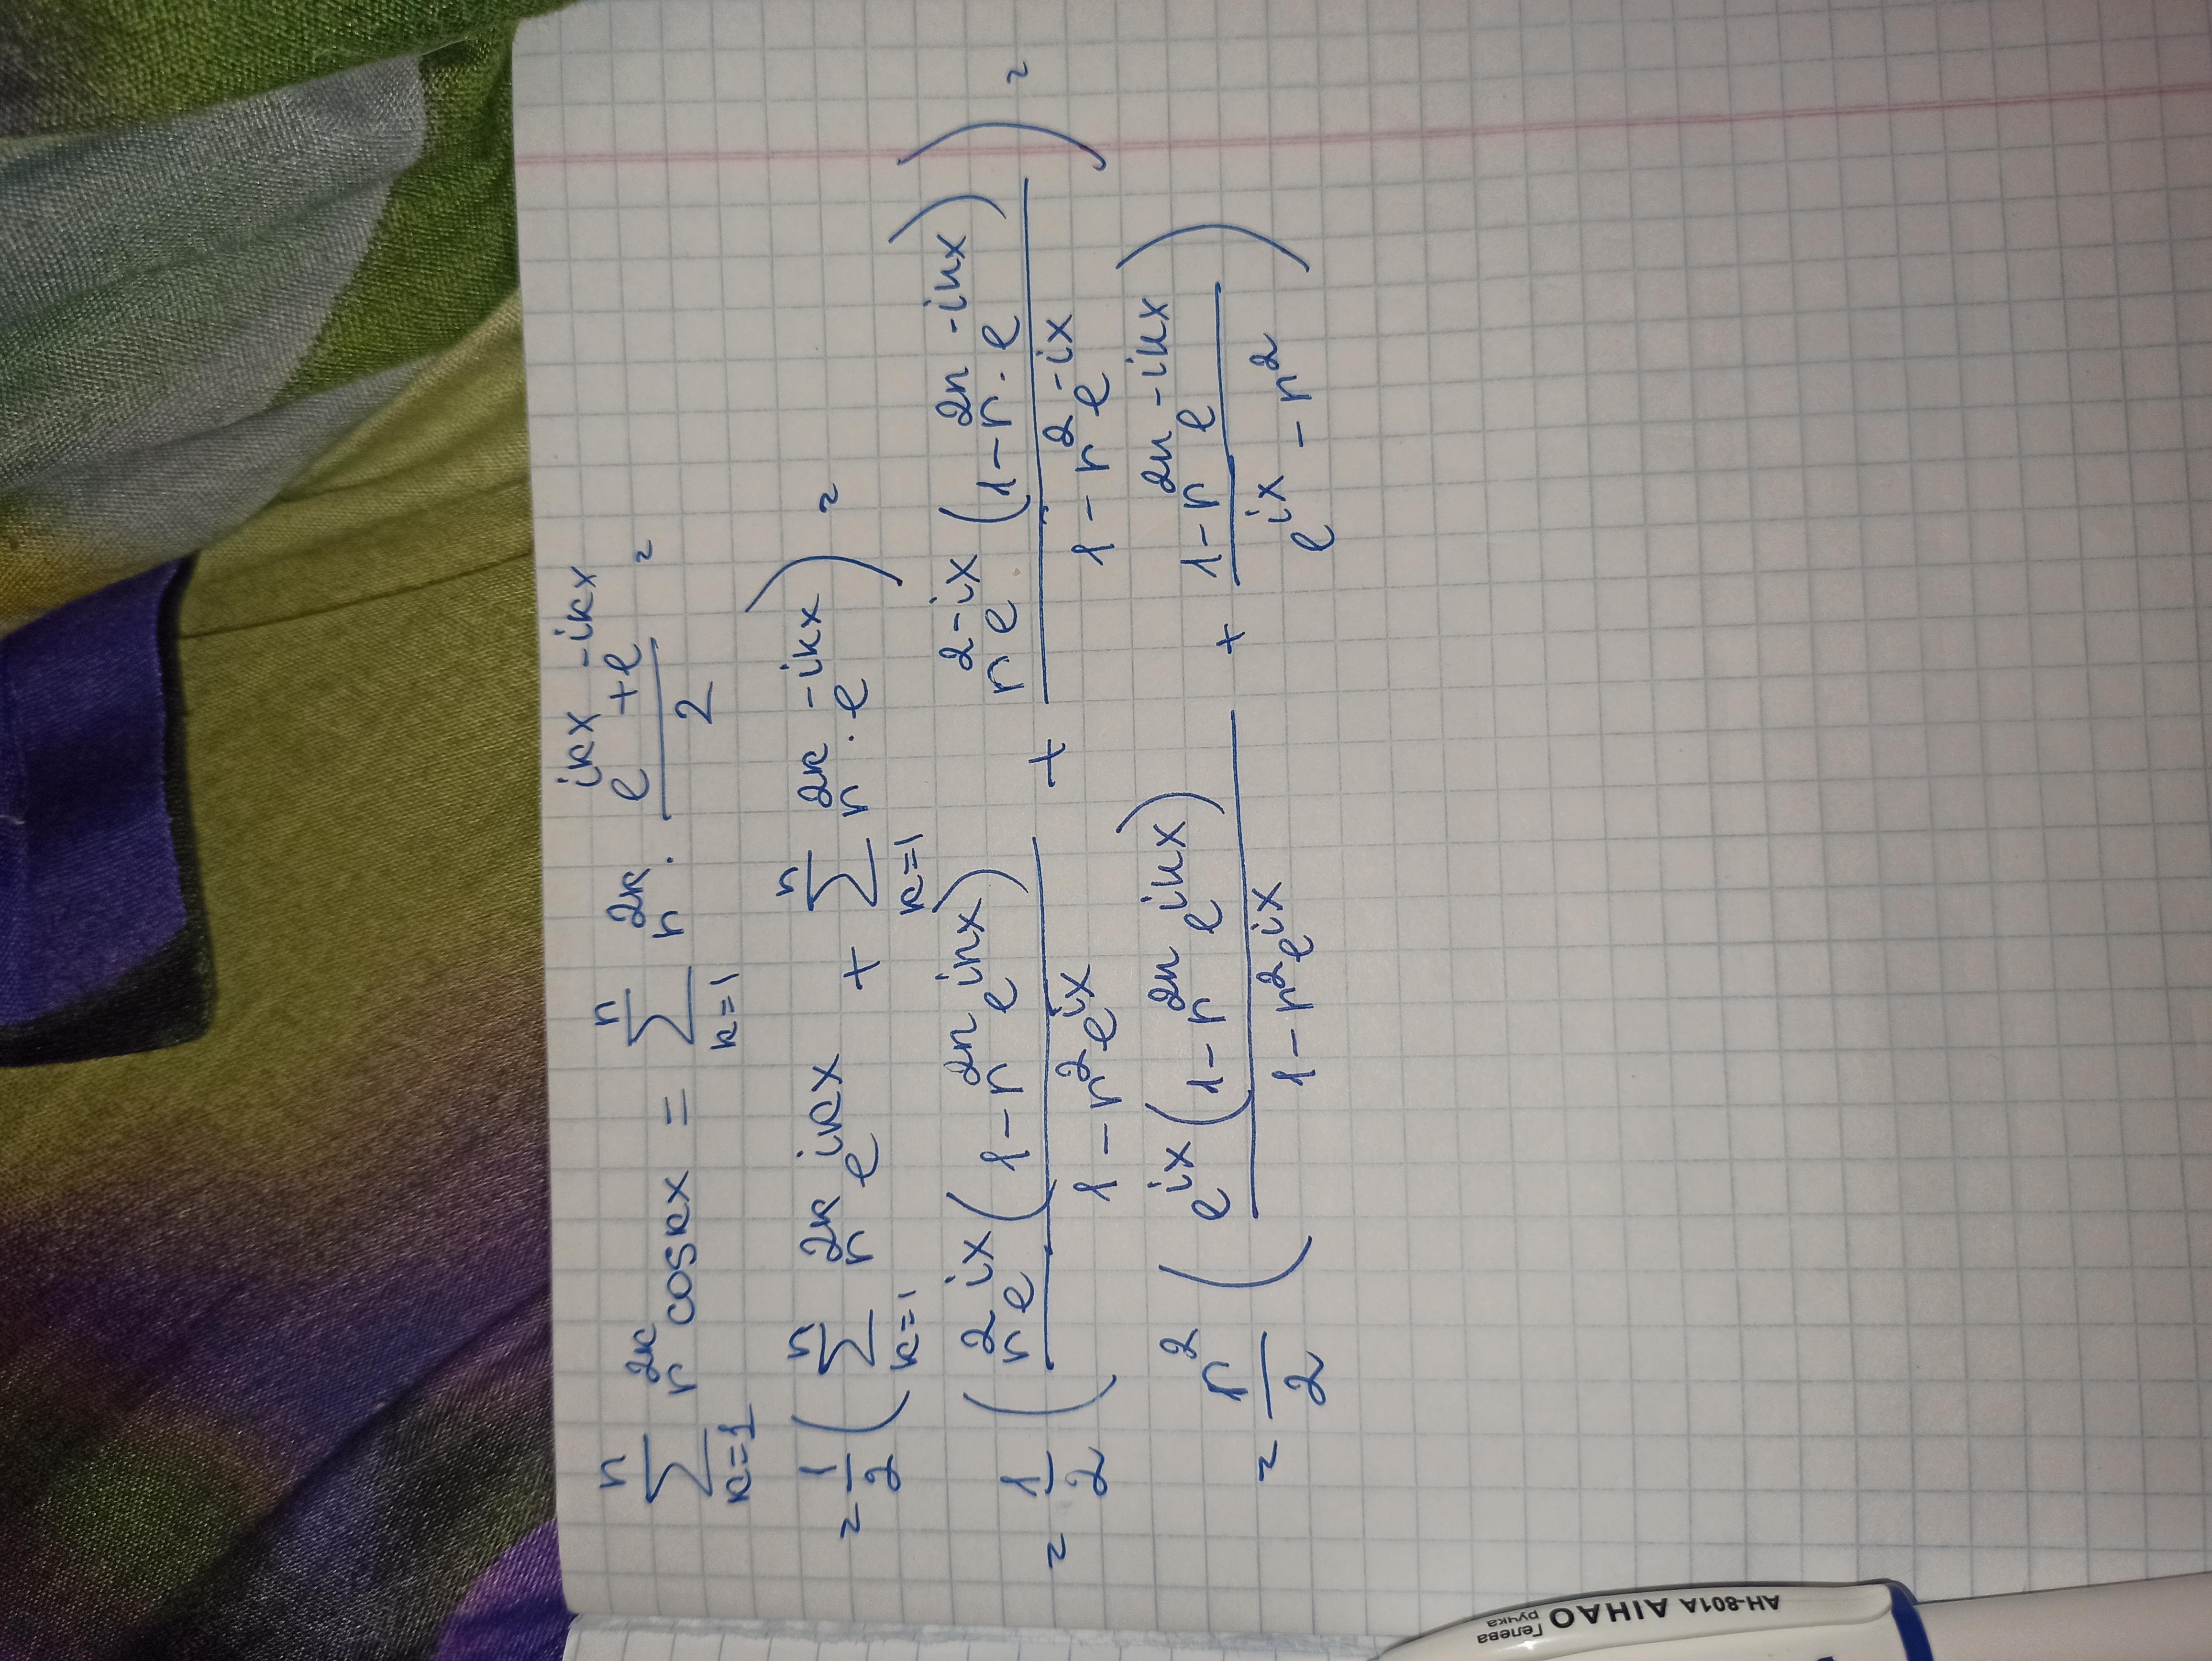 \sum_{k=1}^{n} r^{2k} cos kx = \sum_{k=1}^{n} r^{2k} \cdot \frac{e^{ikx} + e^{-ikx}}{2} =
= \frac{1}{2} ( \sum_{k=1}^{n} r^{2k} e^{ikx} + \sum_{k=1}^{n} r^{2k} \cdot e^{-ikx} ) =
= \frac{1}{2} ( \frac{r^2 e^{ix} (1 - r^{2n} e^{inx})}{1 - r^2 e^{ix}} + \frac{r^2 e^{-ix} (1 - r^{2n} \cdot e^{-inx})}{1 - r^2 e^{-ix}} ) =
= \frac{r^2}{2} ( \frac{e^{ix} (1 - r^{2n} e^{inx})}{1 - r^2 e^{ix}} + \frac{1 - r^{2n} e^{-inx}}{e^{ix} - r^2} )
AH-801A AIHAO
Гелева
ручка